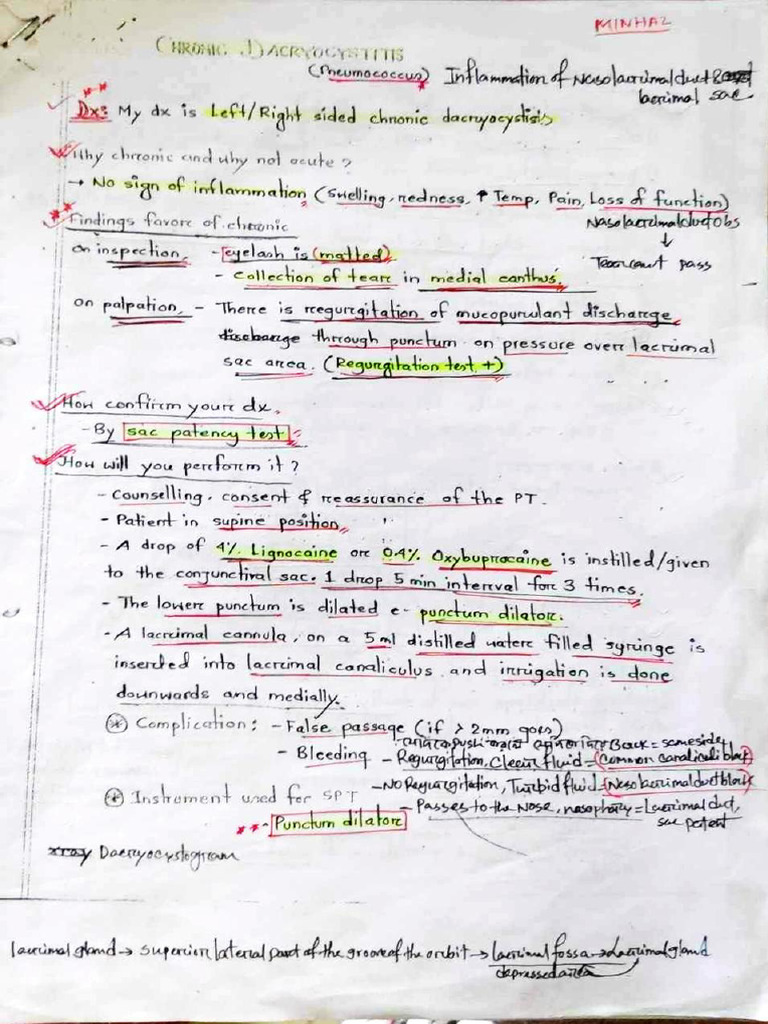 MINHAZ
CHRONIC DACRYOCYSTITIS
(Pneumococcus) Inflammation of Nasolacrimal duct &
lacrimal sac
Dx: My dx is Left/Right sided chronic dacryocystitis
Why chronic and why not acute?
→ No sign of inflammation (Swelling, redness, ↑ Temp, Pain, Loss of function)
Findings favore of chronic
Nasolacrimal duct Obs
↓
Tear cant pass
on inspection, - eyelash is (matted)
- Collection of tear in medial canthus.
on palpation, - There is regurgitation of mucopurulant discharge
discharge through punctum on pressure over lacrimal
sac area. (Regurgitation test, +)
How confirm your dx,
- By sac patency test
How will you perform it?
- Counselling, consent & reassurance of the PT.
- Patient in supine position,
- A drop of 4% Lignocaine or 0.4% Oxybuprocaine is instilled/given
to the conjunctival sac. 1 drop 5 min interval for 3 times.
- The lower punctum is dilated c- punctum dilator.
- A lacrimal cannula, on a 5ml distilled water filled syringe is
inserded into lacrimal canaliculus and irrigation is done
downwards and medially.
* Complication: - False passage (if > 2mm goes)
Back = same side
- Bleeding - Regurgitation, Clear fluid = (Common canaliculi block)
- NO Regurgitation, Turbid fluid = (Nasolacrimal duct block)
* Instrument used for SPT
- Passes to the Nose, nasophary = Lacrimal duct,
sac patent
** - Punctum dilator
xray Dacryocystogram
lacrimal gland → superior lateral part of the groove of the orbit → lacrimal fossa → Lacrimal gland
depressed area